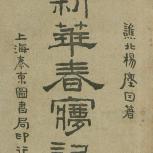 譙北楊塵因著
新華春夢記
上海泰東圖書局印行